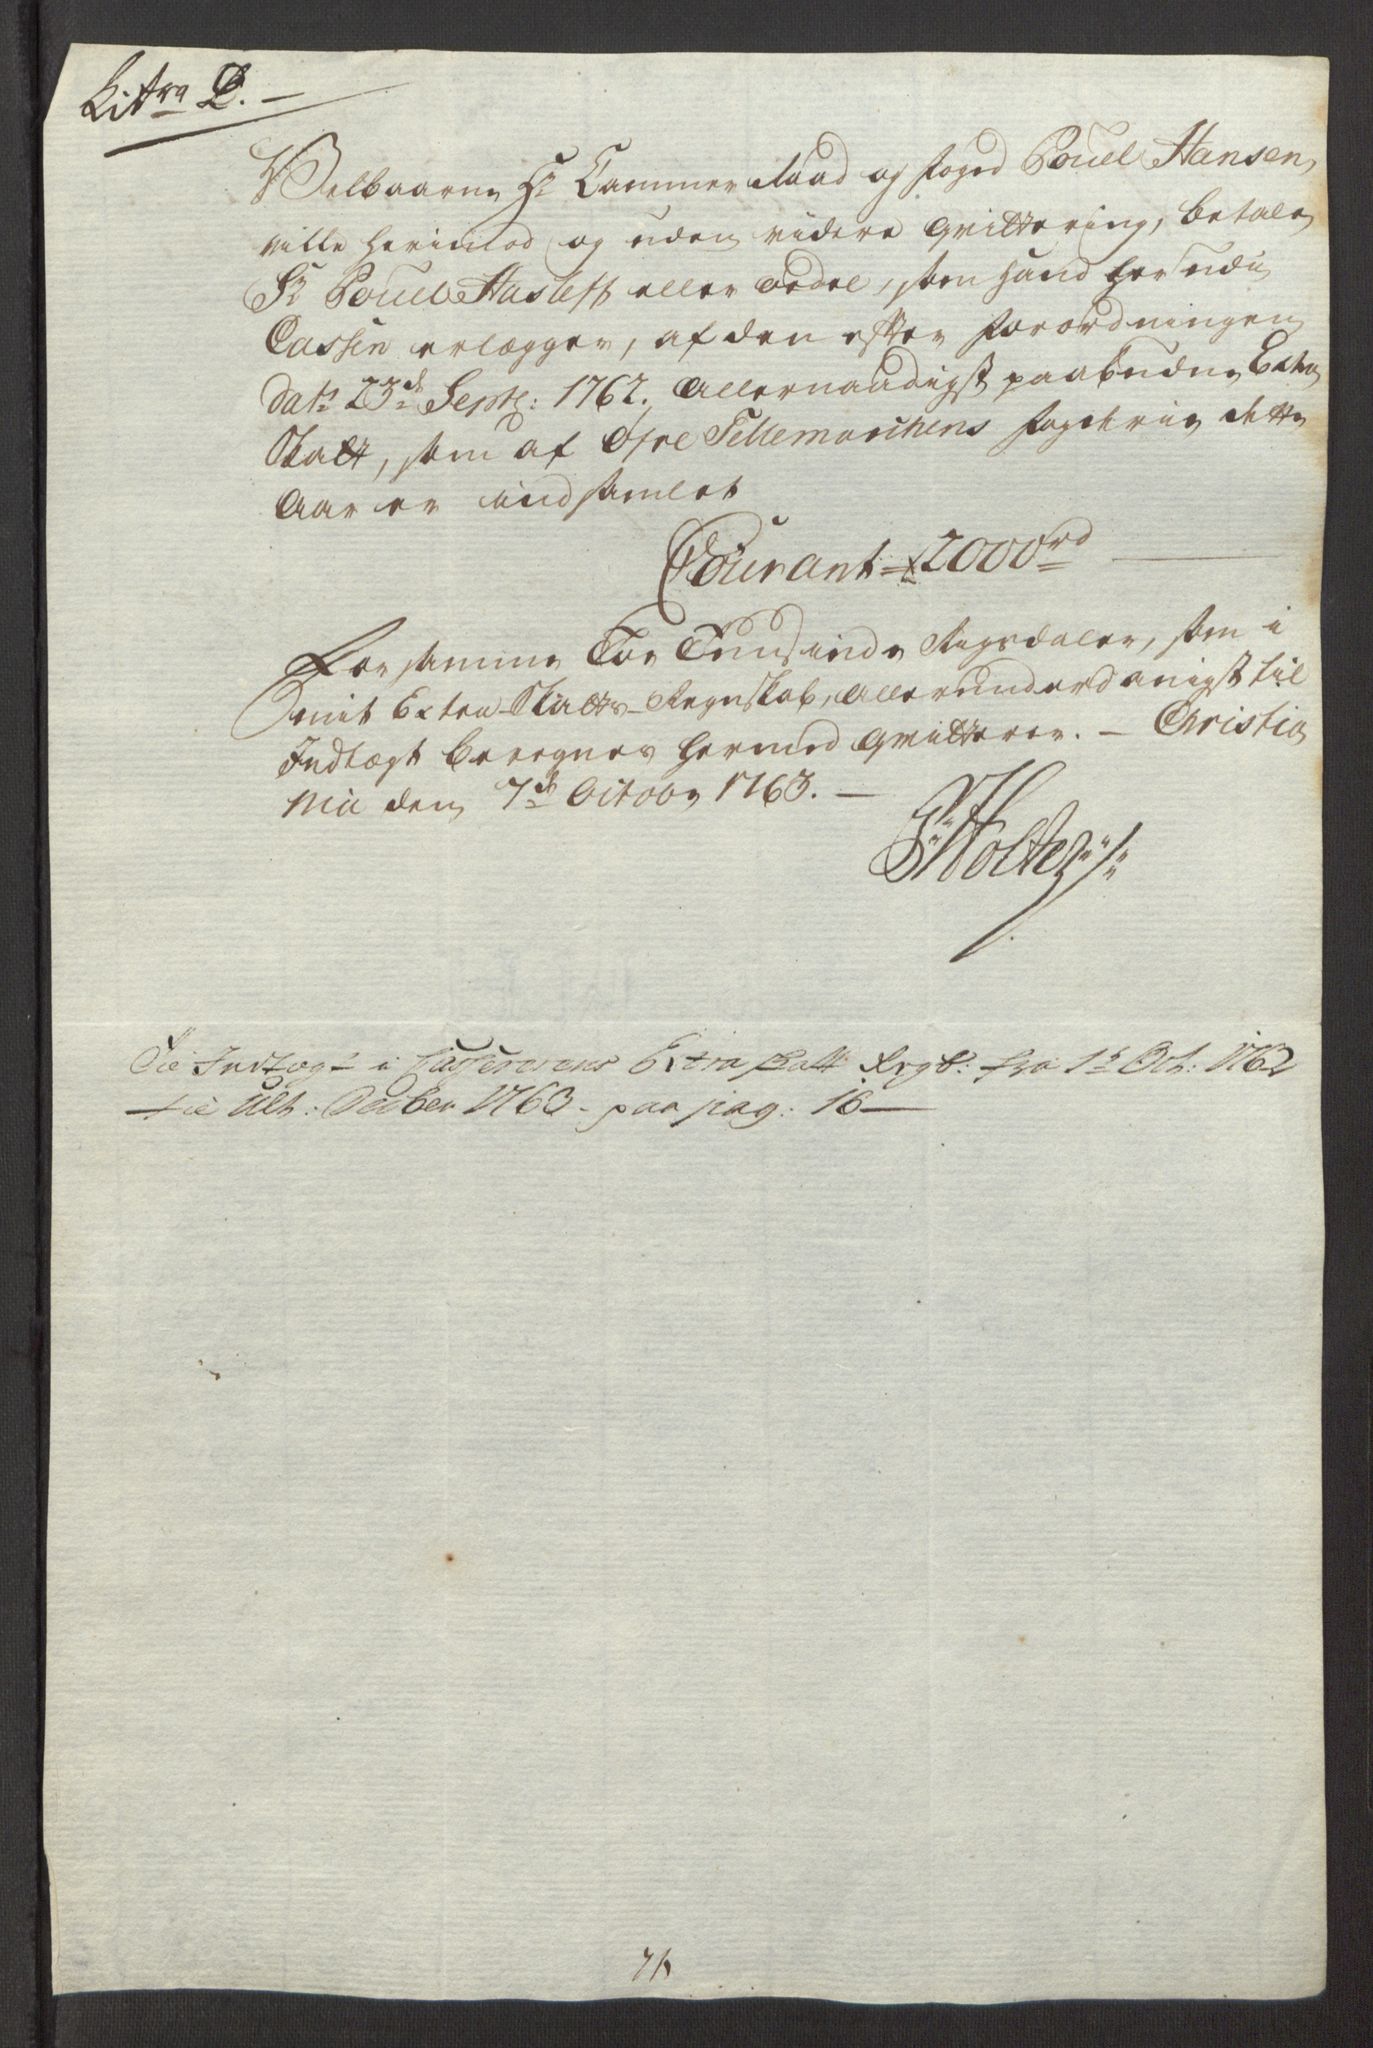 Litra D. —
Velbaarne Hr Cammer Raad og foged Pouel Hansen,
ville herimod og uden videre qvittering, betale
Sr Pouel Hasleff eller ordre, som hand her udi
Cassen erlegger, af den efter forordningen
dat: 23de Septr: 1762. Allernaadigst paabudne Extra
Skatt, som af Øfre Tellemarchens fogderie dette
Aar er indsamlet
Courant 2000rd
For samme Toe Tuusinde Rigsdaler, som i
mit Extra-Skatts-Regnskab, Allerunderdanigst til
Indtægt beregnes hermed qvitterer. — Christia
nia den 7de Octobr 1763. —
Holter
Til Indtægt i Cassererens Extra Skatt Regb: fra 1te Oct: 1762
til Ult: December 1763 - paa pag: 16 —